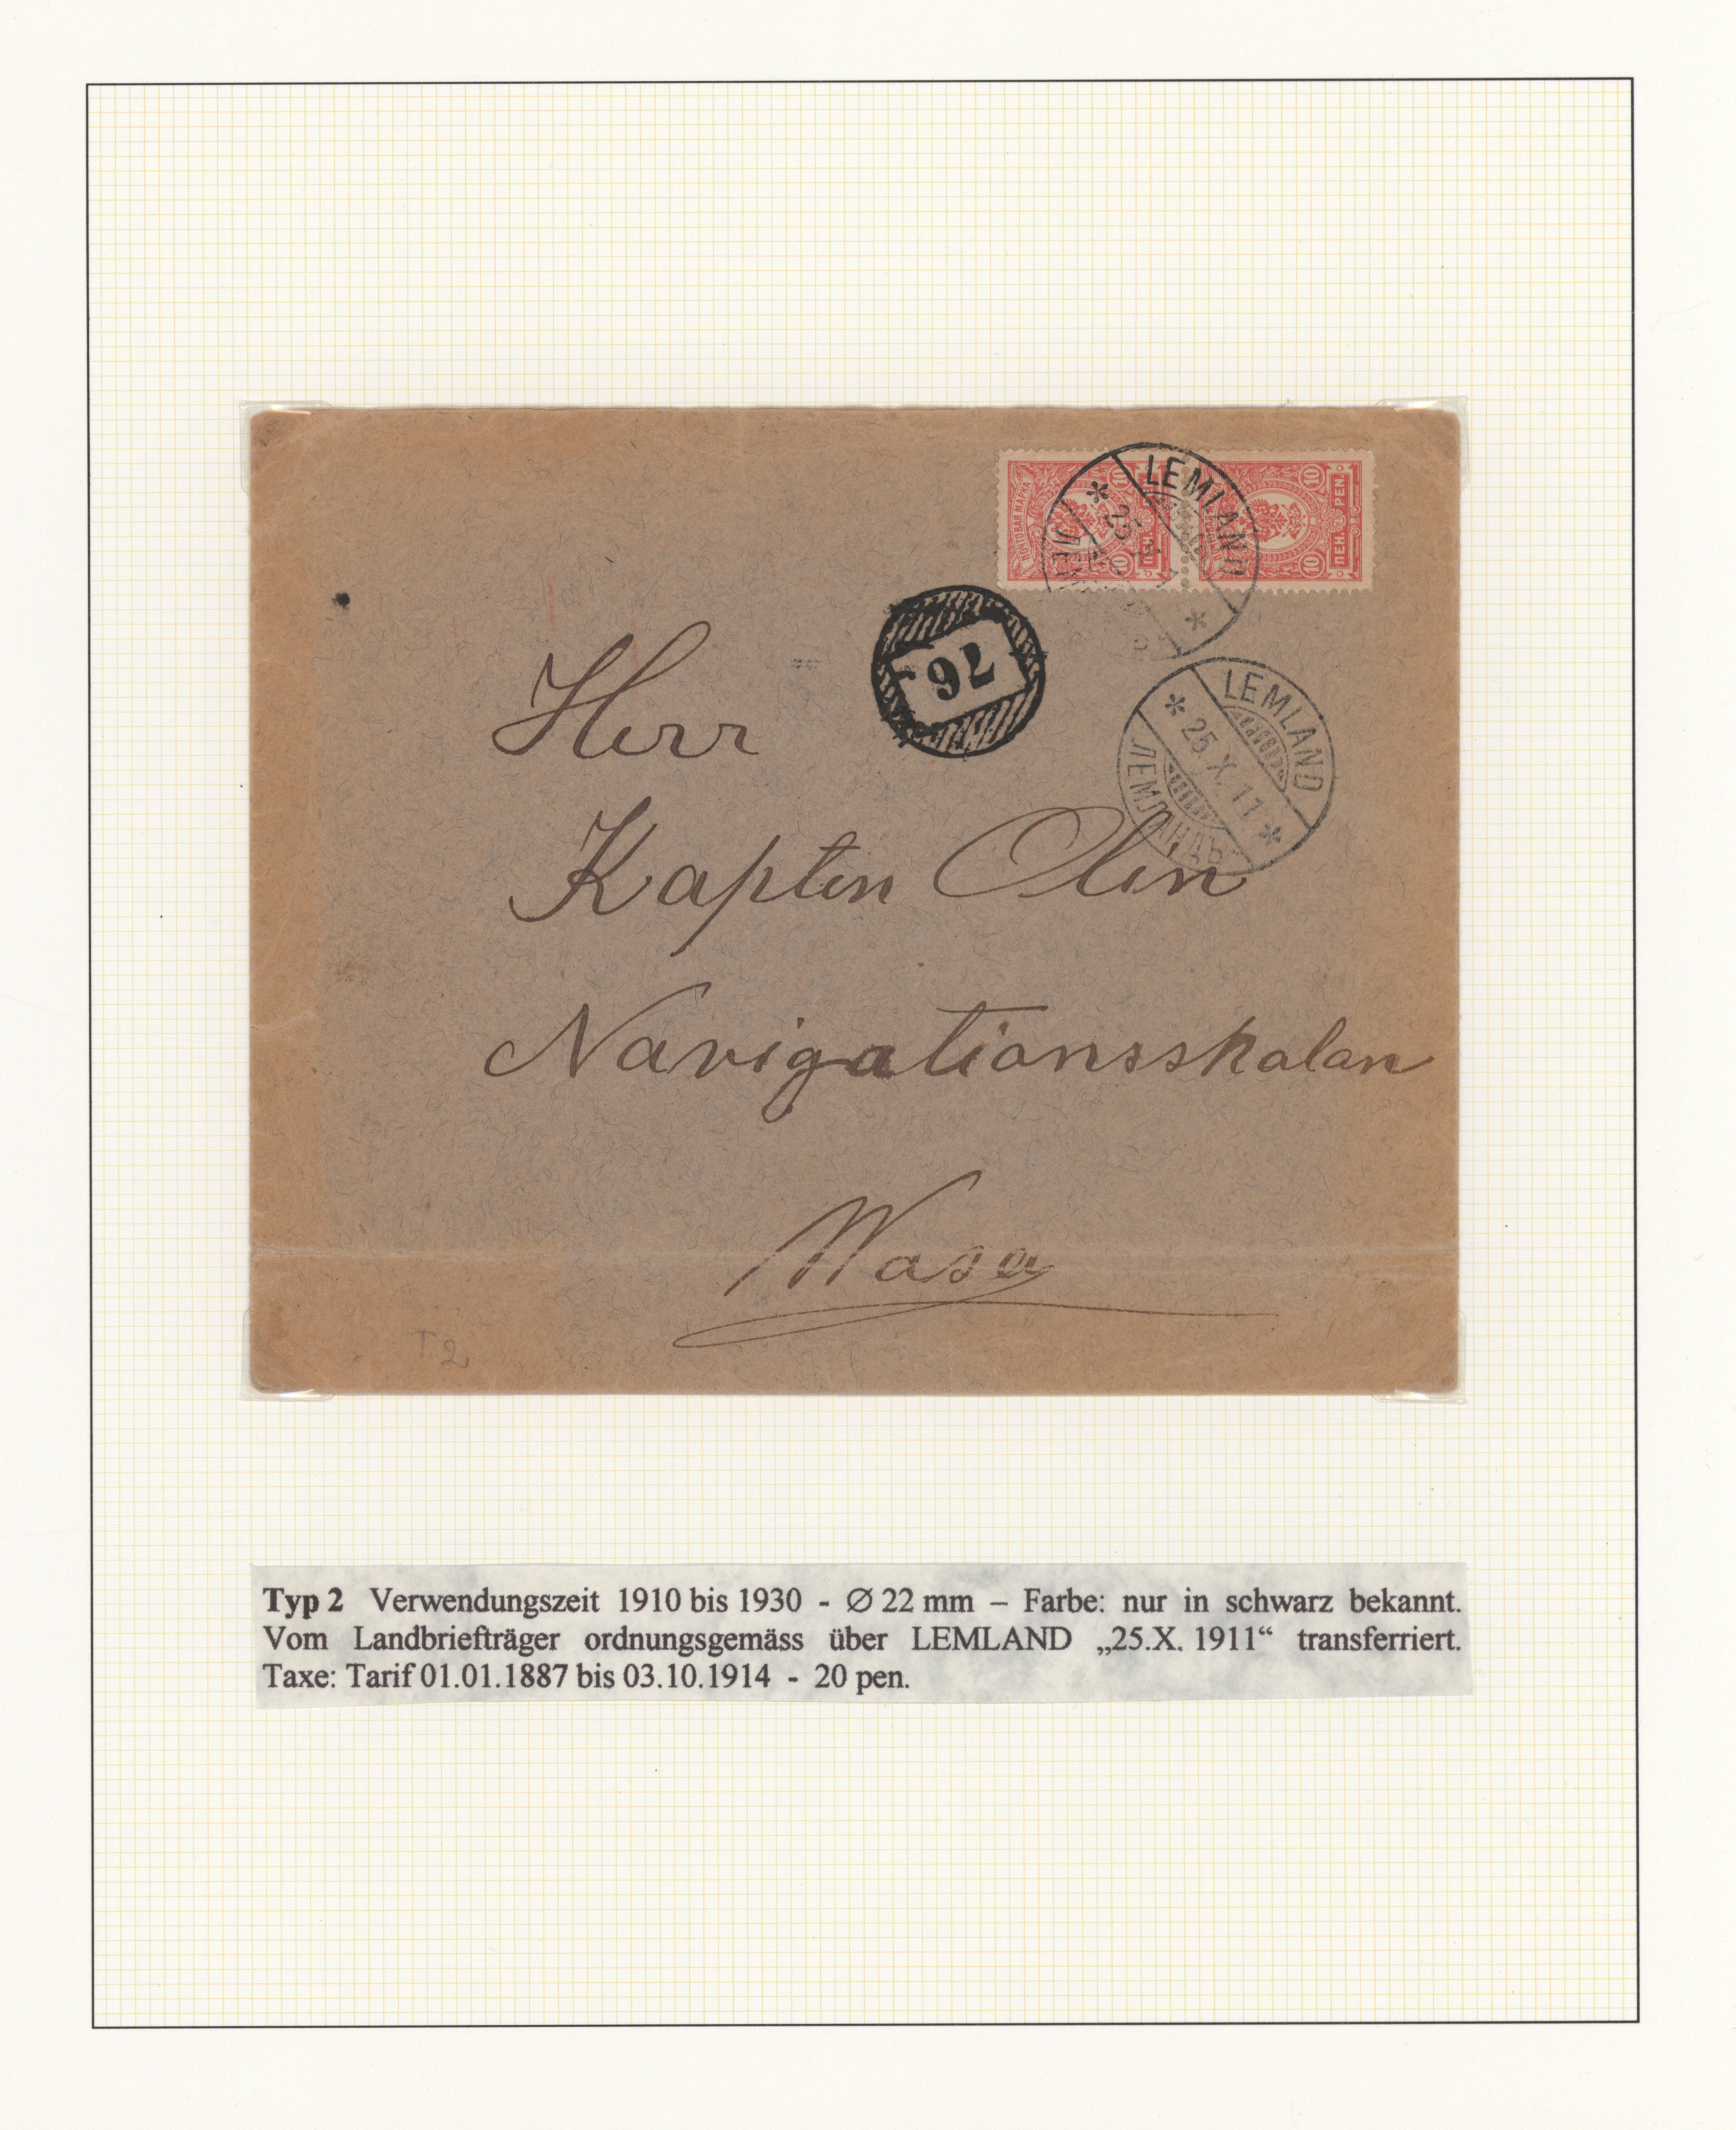 ПОЧТОВАЯ МАРКА 10 10 ПЕН.
10 10 ПЕН. PEN.
LEMLAND
25
76
LEMLAND
25 X. 11
ЛЕМЛАНДЪ
Herr
Kapten Olin
Navigationsskolan
Wasa
T 2
Typ 2 Verwendungszeit 1910 bis 1930 - Ø 22 mm – Farbe: nur in schwarz bekannt.
Vom Landbriefträger ordnungsgemäss über LEMLAND „25.X. 1911“ transferriert.
Taxe: Tarif 01.01.1887 bis 03.10.1914 - 20 pen.